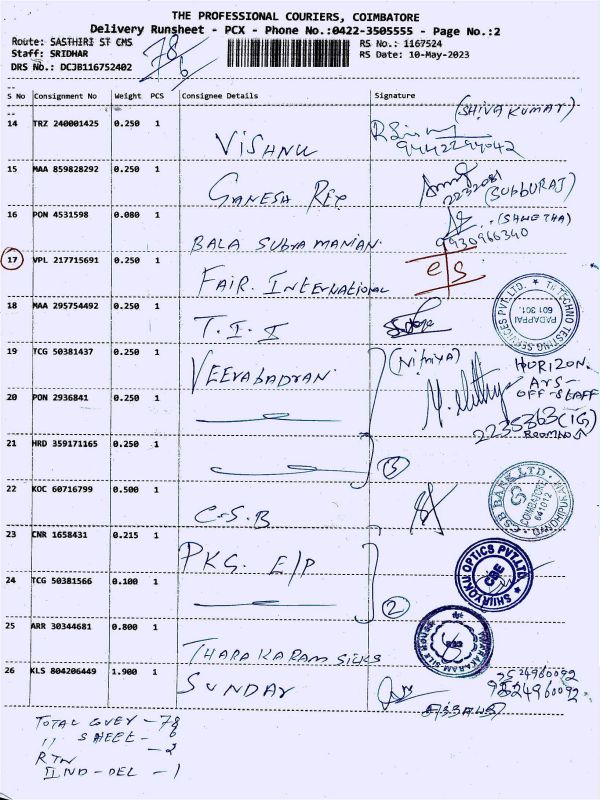 THE PROFESSIONAL COURIERS, COIMBATORE
Delivery Runsheet - PCX - Phone No.:0422-3505555 - Page No.:2
Route: SASTHIRI ST CMS 78 RS No.: 1167524
Staff: SRIDHAR 6 RS Date: 10-May-2023
DRS No.: DCJB116752402
S No Consignment No Weight PCS Consignee Details Signature
14 TRZ 240001425 0.250 1 VISHNU (SHIVA KUMAR)
9442294042
15 MAA 859828292 0.250 1 GANESH REY 2232081 (SUBBURAJ)
16 PON 4531598 0.080 1 BALA SUBRAMANIAN. (SHWETHA)
9930966340
17 VPL 217715691 0.250 1 FAIR. INTERNATIONAL e/s
18 MAA 295754492 0.250 1 T.I.I
TECHNO TESTING SERVICES PVT.LTD.
PADAPPAI
601 301.
19 TCG 50381437 0.250 1 VEERABADRAN. (Nithya) HORIZON.
OFF-STAFF
20 PON 2936841 0.250 1
2235363 (IG)
21 HRD 359171165 0.250 1 3
22 KOC 60716799 0.500 1 C.S.B
CSB BANK LTD.
COIMBATORE
641012
23 CNR 1658431 0.215 1 PKG. E/P
SHIRYOKU OPTICS PVT.LTD
CBE
24 TCG 50381566 0.100 1 2
25 ARR 30344681 0.800 1 THARAKARAM SILKS
26 KLS 804206449 1.900 1 SUNDAR
9524960092
TOTAL CVER - 78
" SHEET - 6
RTN - 2
IIND - DEL - 1